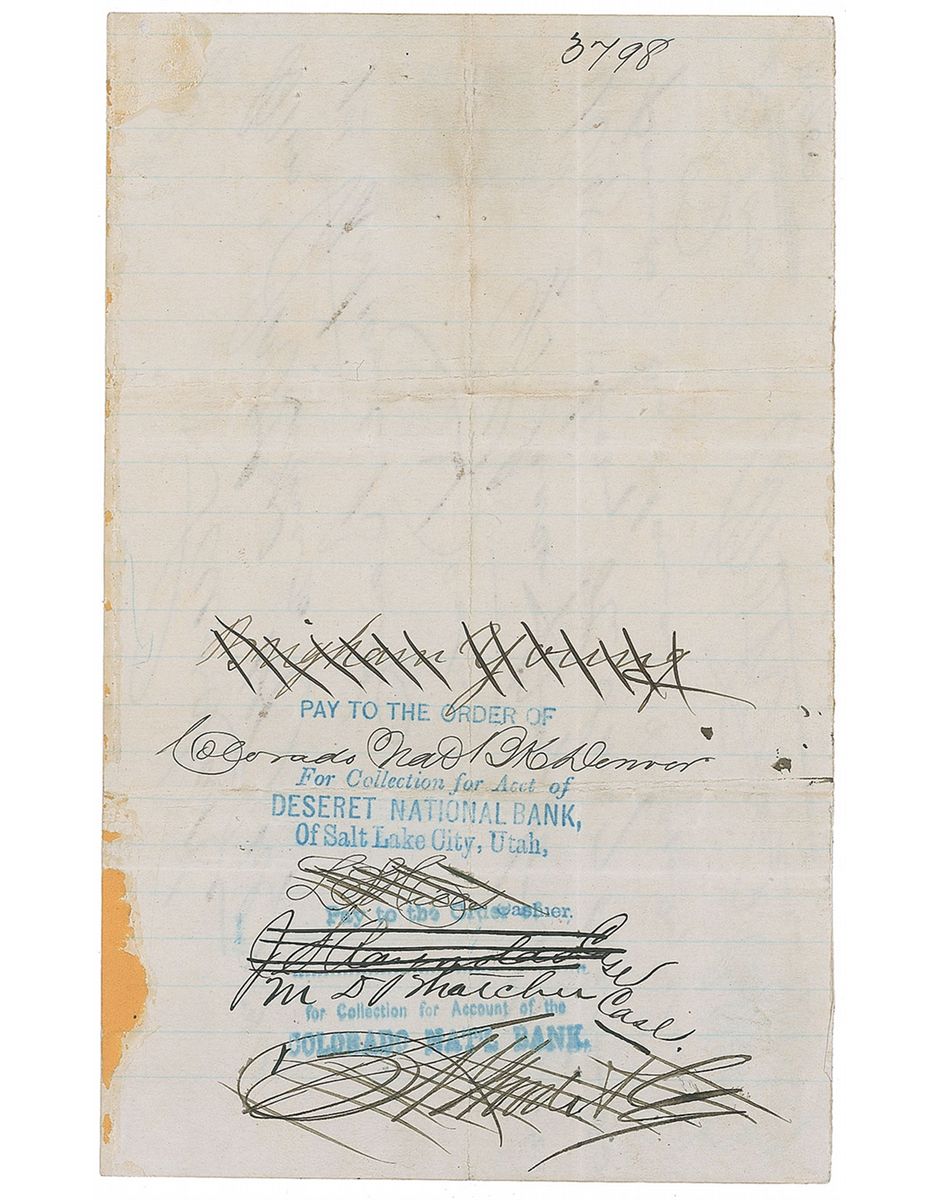 3798
Brigham Young
PAY TO THE ORDER OF
Colorado Nat Bk Denver
For Collection for Acct of
DESERET NATIONAL BANK,
Of Salt Lake City, Utah,
Cashier.
Pay to the Order of
M D Thatcher Cash.
for Collection for Account of the
COLORADO NAT'L BANK.